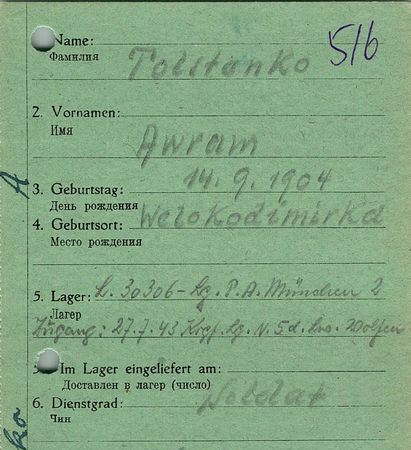 Name: Tolstonko 516
Фамилия
2. Vornamen:
Имя
Awram
3. Geburtstag: 14. 9. 1904
День рождения
4. Geburtsort: Welokodimirka
Место рождения
5. Lager: L. 30306 - Lg. P. A. München 2
Лагер
Zugang: 27.7.43 Krgf. Lg. V. 5d.
Im Lager eingeliefert am:
Доставлен в лагер (число)
6. Dienstgrad: Soldat
Чин